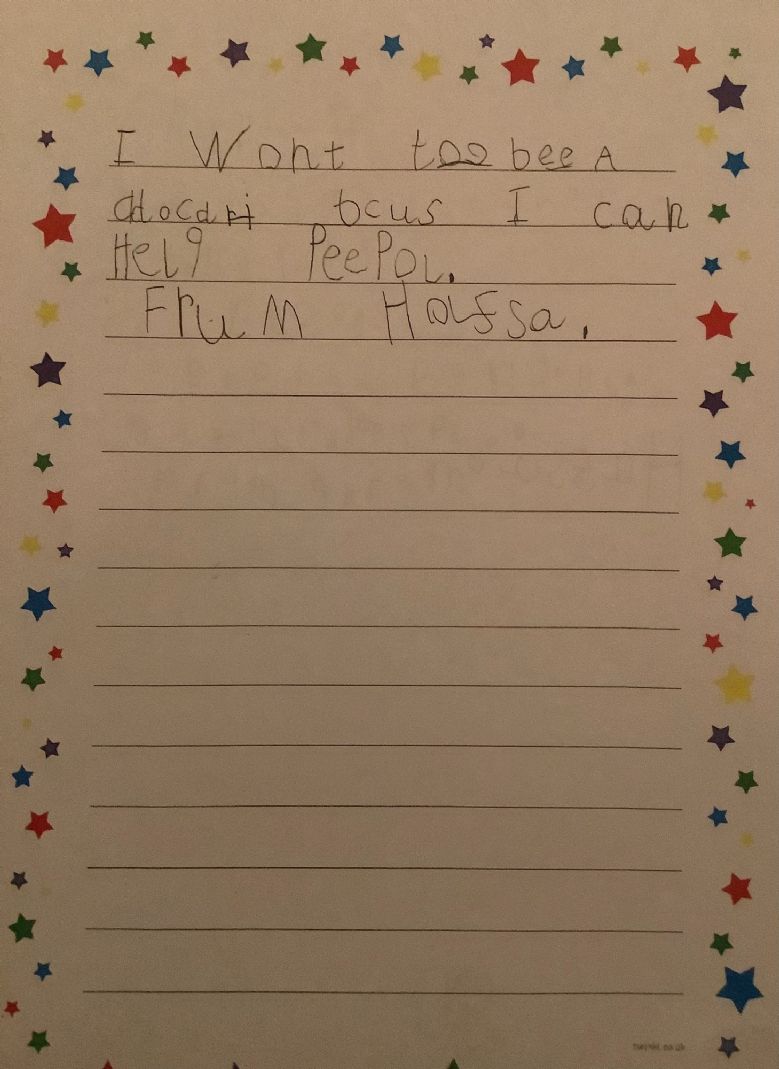 I Wont too bee A
docari bcus I can
Help PeePol.
Frum Hafsa.
twinkl.co.uk